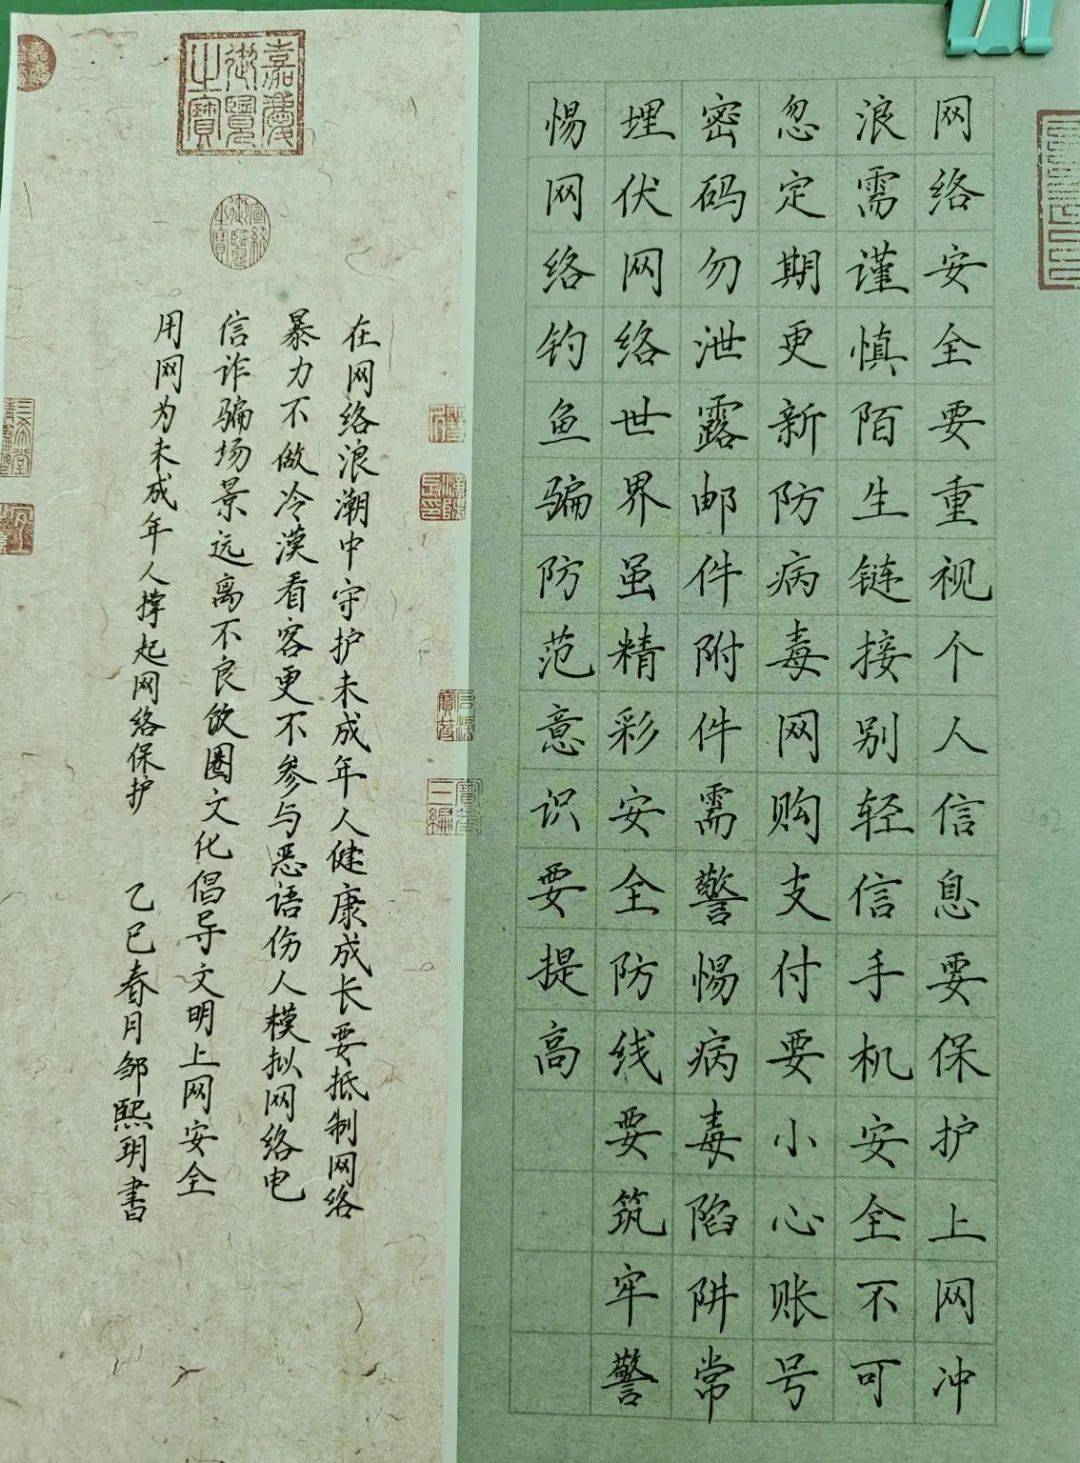 网络安全要重视个人信息要保护上网冲
浪需谨慎陌生链接别轻信手机安全不可
忽定期更新防病毒网购支付要小心账号
密码勿泄露邮件附件需警惕病毒陷阱常
埋伏网络世界虽精彩安全防线要筑牢警
惕网络钓鱼骗防范意识要提高
嘉慶
御覽
之寶
宣統
御覽
之寶
在网络浪潮中守护未成年人健康成长要抵制网络
暴力不做冷漠看客更不参与恶语伤人模拟网络电
信诈骗场景远离不良饭圈文化倡导文明上网安全
用网为未成年人撑起网络保护 乙巳春月邹熙玥书